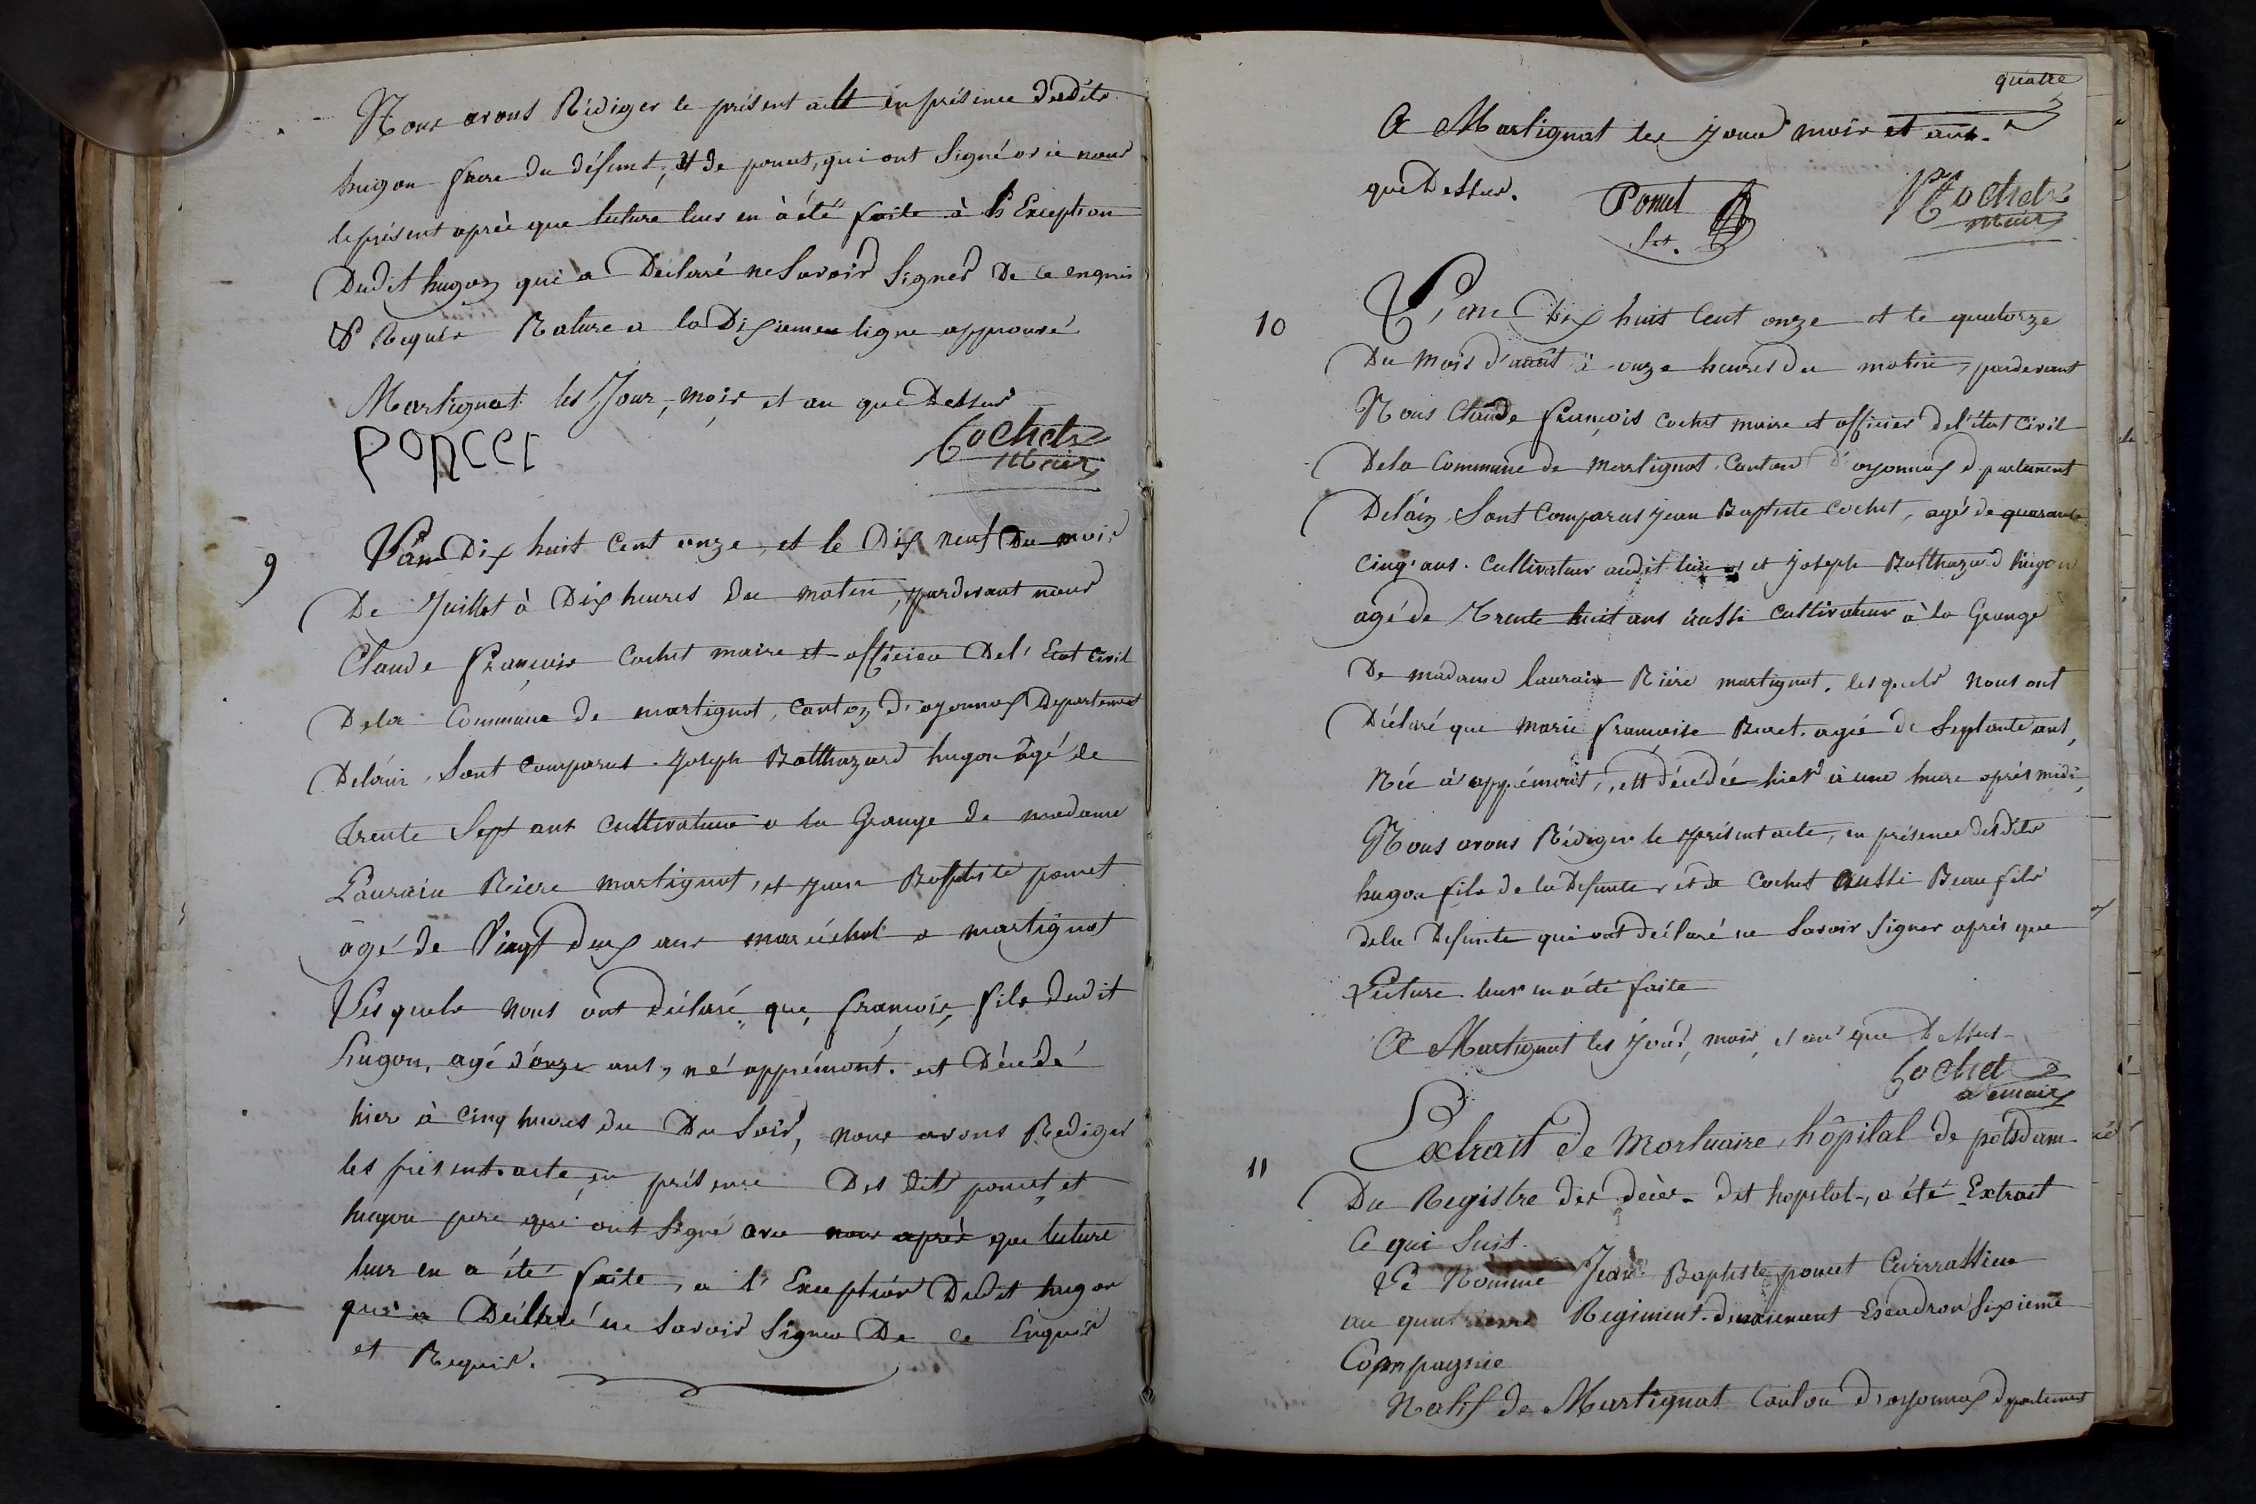 Nous avons Rédiger le présent acte en présence desdits
hugon frere du défunt, et de poncet, qui ont signé avec nous
le présent après que lecture leur en à été faite à l'Exception
Dudit hugon qui a Déclaré ne Savoir Signer De ce enquis
& Requis Rature a la Dixiemen ligne approuvé
Martignat les Jour, mois et an que Dessus
poncet Cochet
Maire
9
L'an Dix huit Cent onze, et le Dix neuf Du mois
De Juillet à Dix heures Du matin, pardevant nous
Claude François Cochet maire et officier Del' Etat Civil
Dela Commune de martignat, Canton d'oyonnax Departement
Delain, Sont comparus Joseph Balthazard hugon âgé de
trente Sept ans Cultivateur a la Grange de madame
Laurain Riere martignat, et Jean Baptiste poncet
âgé de Vingt deux ans maréchal a martignat
Les quels nous ont déclaré que, françois, fils dudit
hugon, agé d'onze ans, né apprémont. est Décédé
hier à Cinq heures du Du Soir, nous avons Rediger
les présent acte, en présence Des dits poncet, et
hugon pere qui ont Signé avec nous après que lecture
leur en a été faite, a l'Exception Dudit hugon
qui a Déclaré ne Savoir Signer De ce Enquis
et Requis.
quatre
A Martignat les Jour mois et ans.
que Dessus. Poncet Cochet
Set. Maire
10
L'an Dix huit Cent onze et le quatorze
Du Mois d'août à onze heures du matin, pardevant
Nous Claude françois Cochet maire et officier del'état Civil
Dela Commune de Martignat, Canton D'oyonnax départament
Delain, Sont Comparus Jean Baptiste Cochet, agés de quarante
Cinq ans. Cultivateur audit lieu et Joseph Balthazard hugon
agé de Trente huit ans aussi Cultivateur à la Grange
De madame laurain Riere martignat. lesquels Nous ont
Déclaré que marie françoise Buret. agée de Septante ans,
Née à apprémont, est décédée hier à une heure après midi,
Nous avons Rédiger le présent acte, en présence desdits
hugon fils de la Defunte, et de Cochet aussi Beau fils
dela Defunte qui ont déclaré ne Savoir Signer après que
Lecture leur en a été faite
A Martignat les Jour, mois, et an que Dessus
Cochet
maire
11
Extrait de Mortuaire, hôpital de potsdam
Du Registre des décès dit hopital, a été Extrait
Ce qui Suit.
Le Nommé Jean Baptiste poncet Cuirrassieur
au quatrieme Regiment. Escadron Sixieme
Compagnie
Natif de Martignat Canton d'oyonnax departement